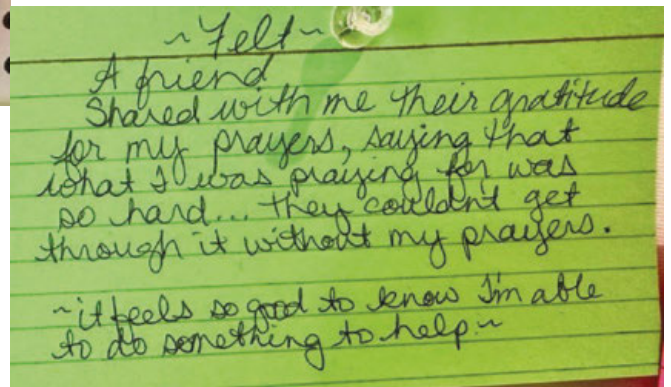 ~Felt~
A friend
Shared with me their gratitude
for my prayers, saying that
what I was praying for was
so hard... they couldnt get
through it without my prayers.
~it feels so good to know I'm able
to do something to help~